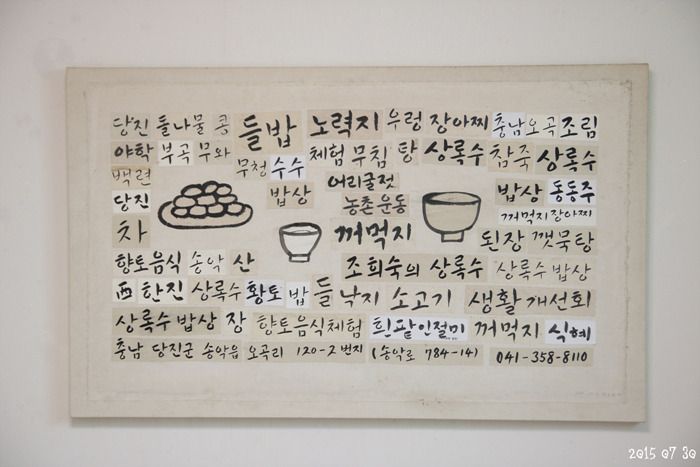 당진 돌나물 콩 들밥 노력지 우렁 장아찌 충남오곡조림
야학 부곡 무와 무청 수수 체험 무침 탕 상록수 참죽 상록수
백련 밥상 어리굴젓 밥상 동동주
당진 농촌운동 꺼먹지장아찌
차 꺼먹지 된장 깻묵탕
향토음식 송악 산 조희숙의 상록수 상록수 밥상
한진 상록수 황토 밥 들 낙지 소고기 생활개선회
상록수 밥상 장 향토음식체험 흰팥인절미 꺼먹지 식혜
충남 당진군 송악읍 오곡리 120-2번지 (송악로 784-14) 041-358-8110
2015 07 30